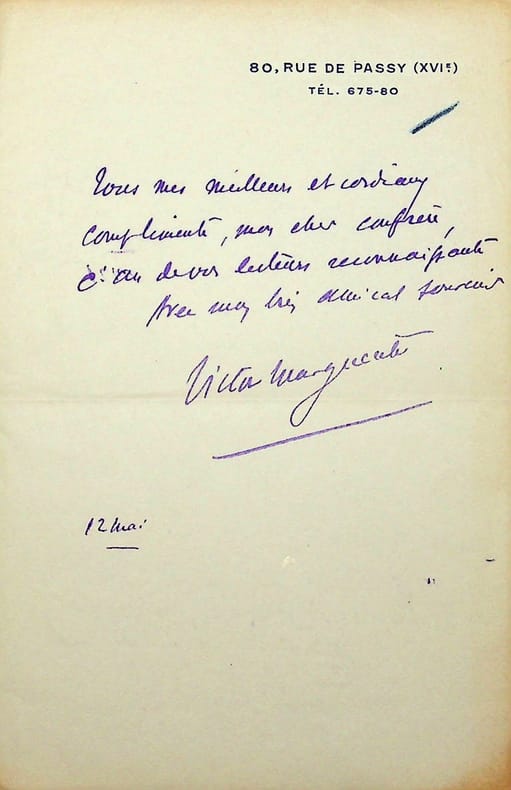 80, RUE DE PASSY (XVIᵉ)
TÉL. 675-80
Tous mes meilleurs et cordiaux
compliments, mon cher confrère,
d'un de vos lecteurs reconnaissants
Avec mon très amical souvenir
Victor Margueritte
12 mai